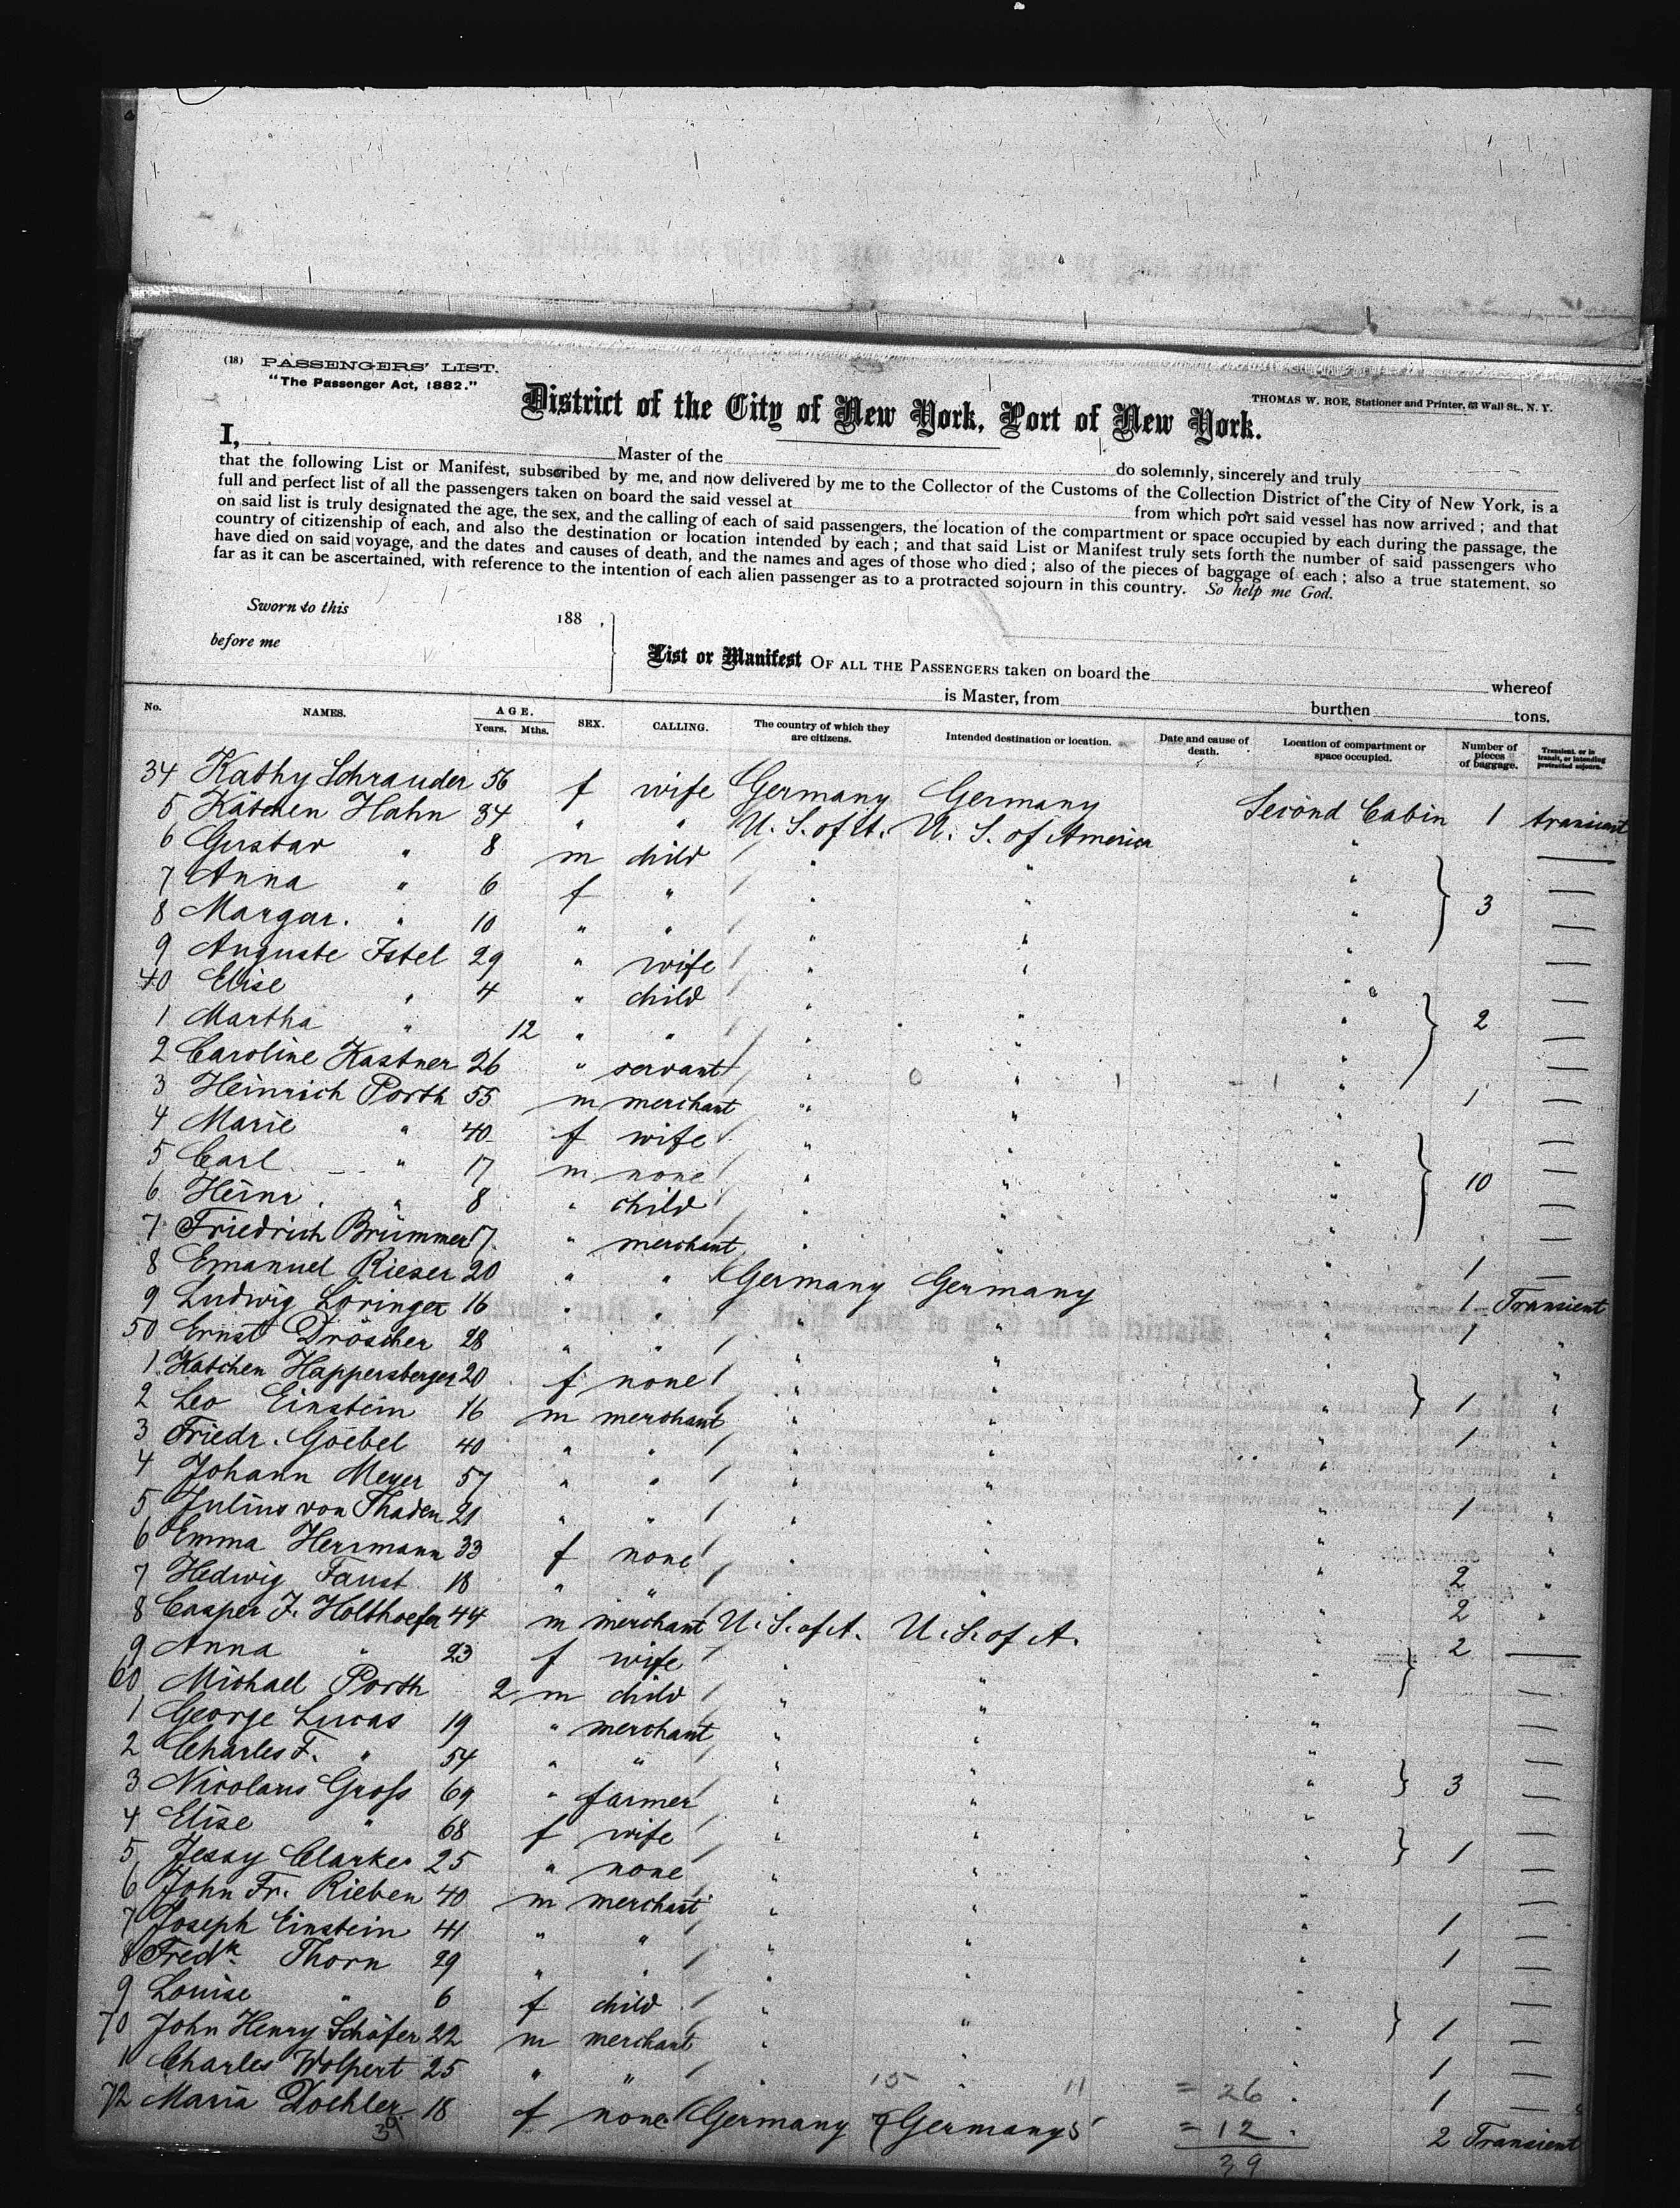 (18) PASSENGERS' LIST.
"The Passenger Act, 1882."
THOMAS W. ROE, Stationer and Printer, 63 Wall St., N. Y.
District of the City of New York, Port of New York.
I, Master of the do solemnly, sincerely and truly
that the following List or Manifest, subscribed by me, and now delivered by me to the Collector of the Customs of the Collection District of the City of New York, is a
full and perfect list of all the passengers taken on board the said vessel at from which port said vessel has now arrived; and that
on said list is truly designated the age, the sex, and the calling of each of said passengers, the location of the compartment or space occupied by each during the passage, the
country of citizenship of each, and also the destination or location intended by each; and that said List or Manifest truly sets forth the number of said passengers who
have died on said voyage, and the dates and causes of death, and the names and ages of those who died; also of the pieces of baggage of each; also a true statement, so
far as it can be ascertained, with reference to the intention of each alien passenger as to a protracted sojourn in this country. So help me God.
Sworn to this 188 .
before me
List or Manifest OF ALL THE PASSENGERS taken on board the whereof
is Master, from burthen tons.
No. NAMES. AGE. Years. Mths. SEX. CALLING. The country of which they are citizens. Intended destination or location. Date and cause of death. Location of compartment or space occupied. Number of pieces of baggage. Transient, or in transit, or intending protracted sojourn.
34 Kathy Schrauder 56 f wife Germany Germany Second Cabin 1 transient
5 Kätchen Hahn 34 " " U. S. of A. U. S. of America "
6 Gustav " 8 m child " " "
7 Anna " 6 f " " " " 3
8 Margar. " 10 " " " " "
9 Auguste Istel 29 " wife " " "
40 Elise " 4 " child " " "
1 Martha " 12 " " " " " 2
2 Caroline Kastner 26 " servant " " "
3 Heinrich Porth 55 m merchant " " " 1
4 Marie " 40 f wife " " "
5 Carl " 17 m none " " " 10
6 Heinr. " 8 " child " " "
7 Friedrich Brümmer 17 " merchant " " "
8 Emanuel Rieser 20 " " Germany Germany " 1
9 Ludwig Löringer 16 " " " " " 1 Transient
50 Ernst Dröscher 28 " " " " " 1 "
1 Katchen Happersberger 20 f none " " " "
2 Leo Einstein 16 m merchant " " " 1 "
3 Friedr. Goebel 40 " " " " " 1 "
4 Johann Meyer 57 " " " " " "
5 Julius von Thaden 21 " " " " " 1 "
6 Emma Herrmann 33 f none " " " "
7 Hedwig Faust 18 " " " " " 2 "
8 Casper J. Holthoefer 44 m merchant U. S. of A. U. S. of A. " 2 "
9 Anna " 23 f wife " " " 2
60 Michael Porth 2 m child " " "
1 George Lucas 19 " merchant " " "
2 Charles F. " 54 " " " " "
3 Nicolaus Gross 69 " farmer " " " 3
4 Elise " 68 f wife " " "
5 Jessy Clarker 25 " none " " " 1
6 John Fr. Rieben 40 m merchant " " "
7 Joseph Einstein 41 " " " " " 1
8 Fredk. Thorn 29 " " " " " 1
9 Louise " 6 f child " " "
70 John Henry Schäfer 22 m merchant " " " 1
1 Charles Wolpert 25 " " " " " 1
15 11 = 26 1
72 Maria Doehler 18 f none Germany 7 Germany 5 = 12 2 Transient
39 39